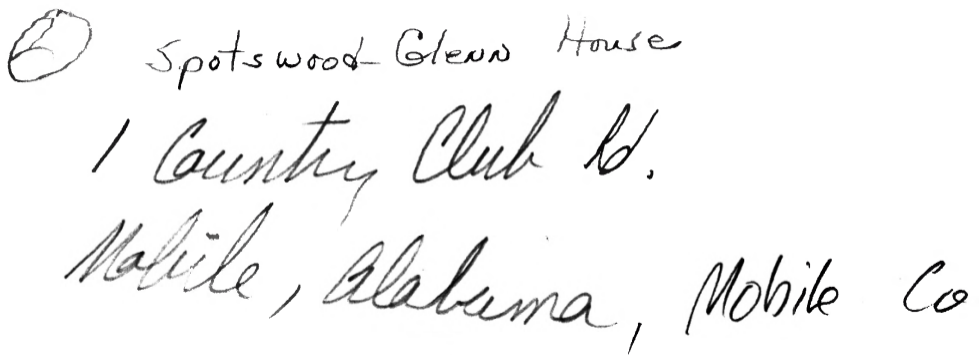 6 Spotswood-Glenn House
1 Country Club Rd.
Mobile, Alabama, Mobile Co